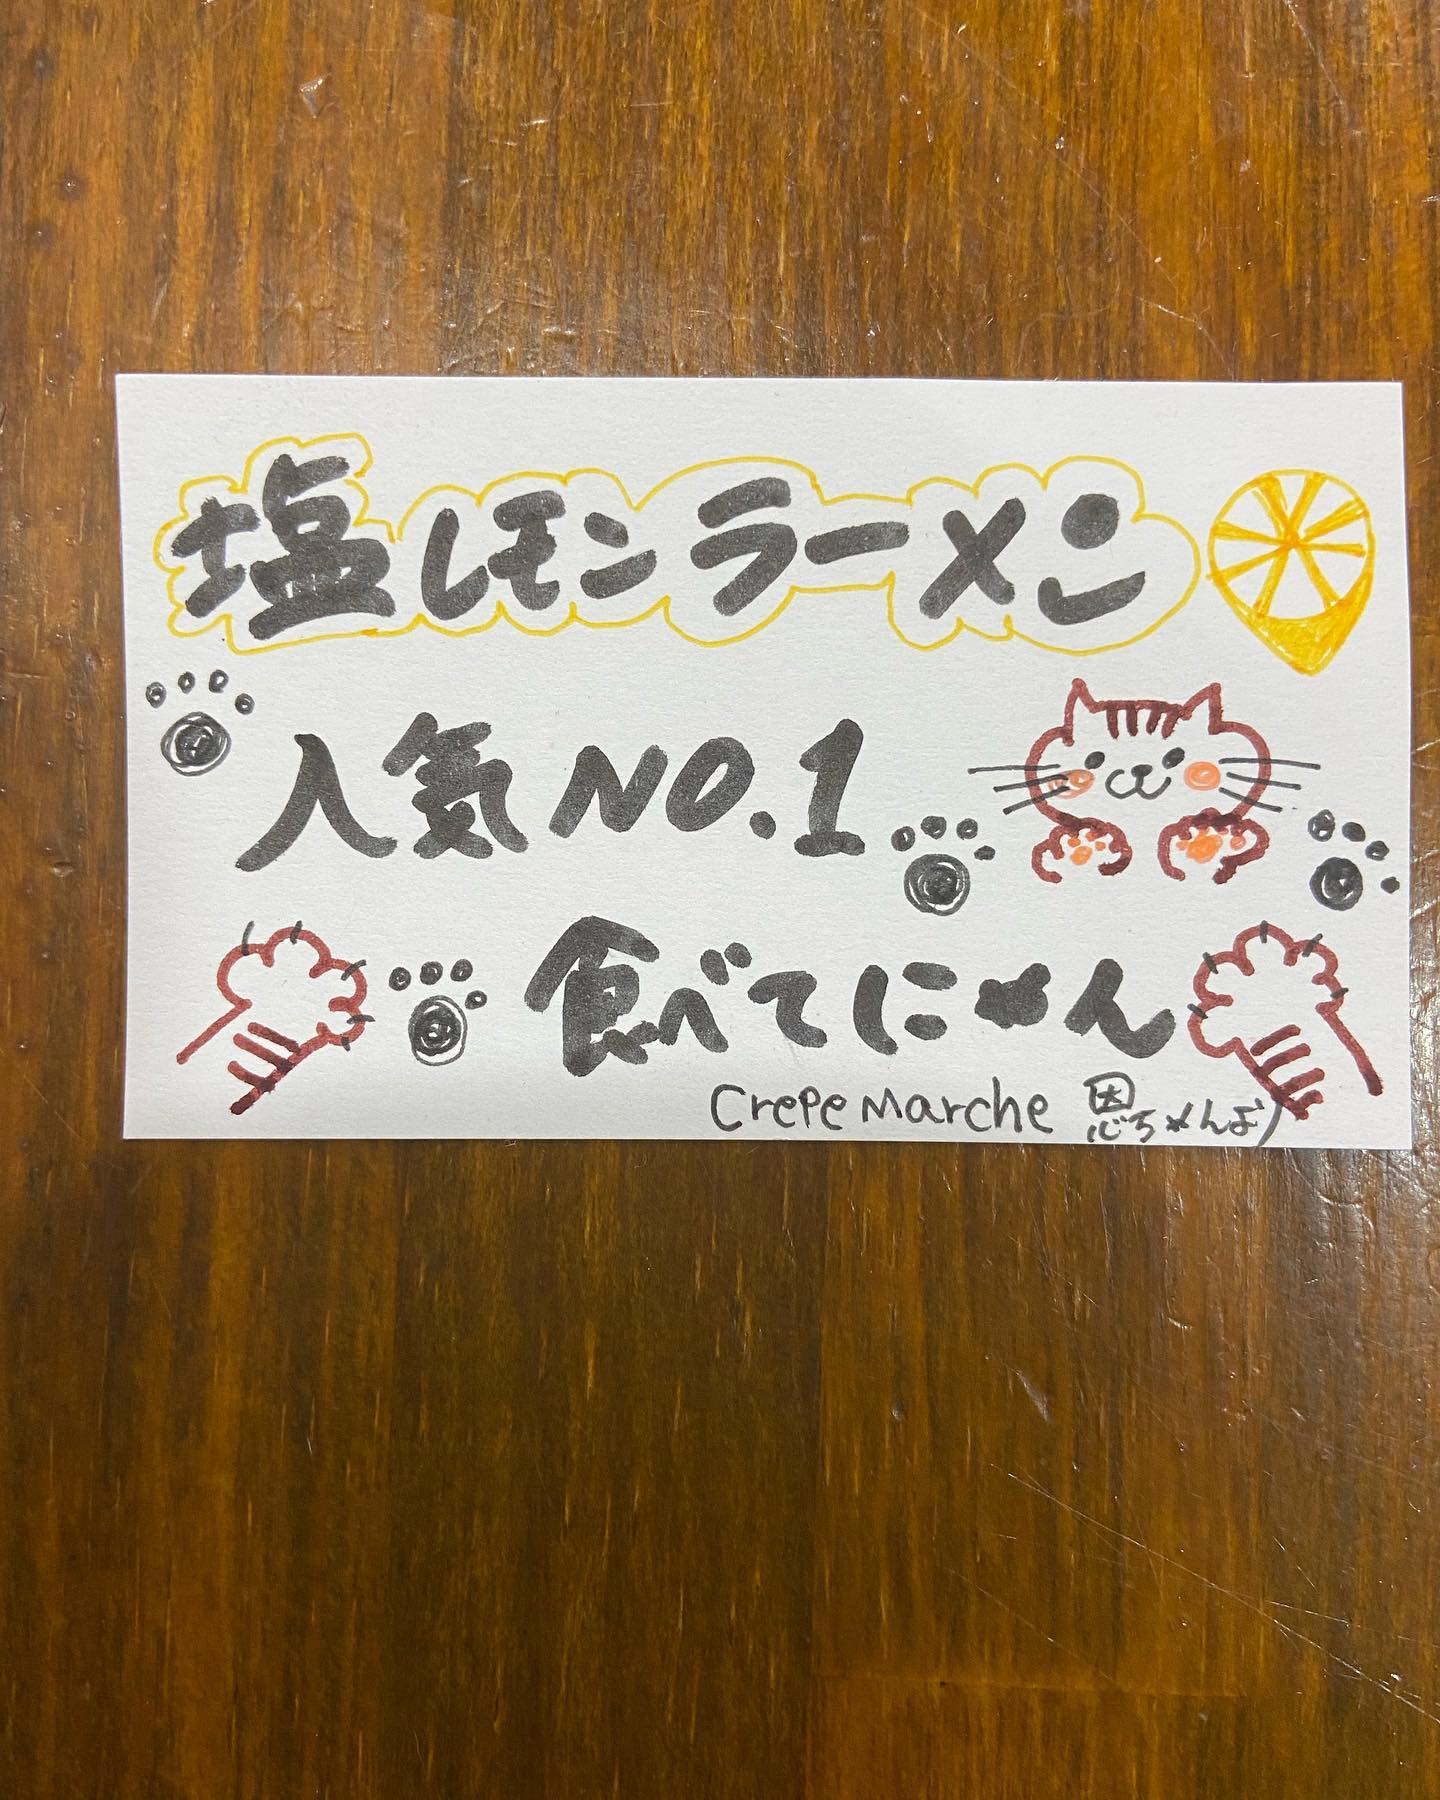 塩レモンラーメン
人気NO.1
食べてにゃん
Crepe Marche 恩ちゃんぽ